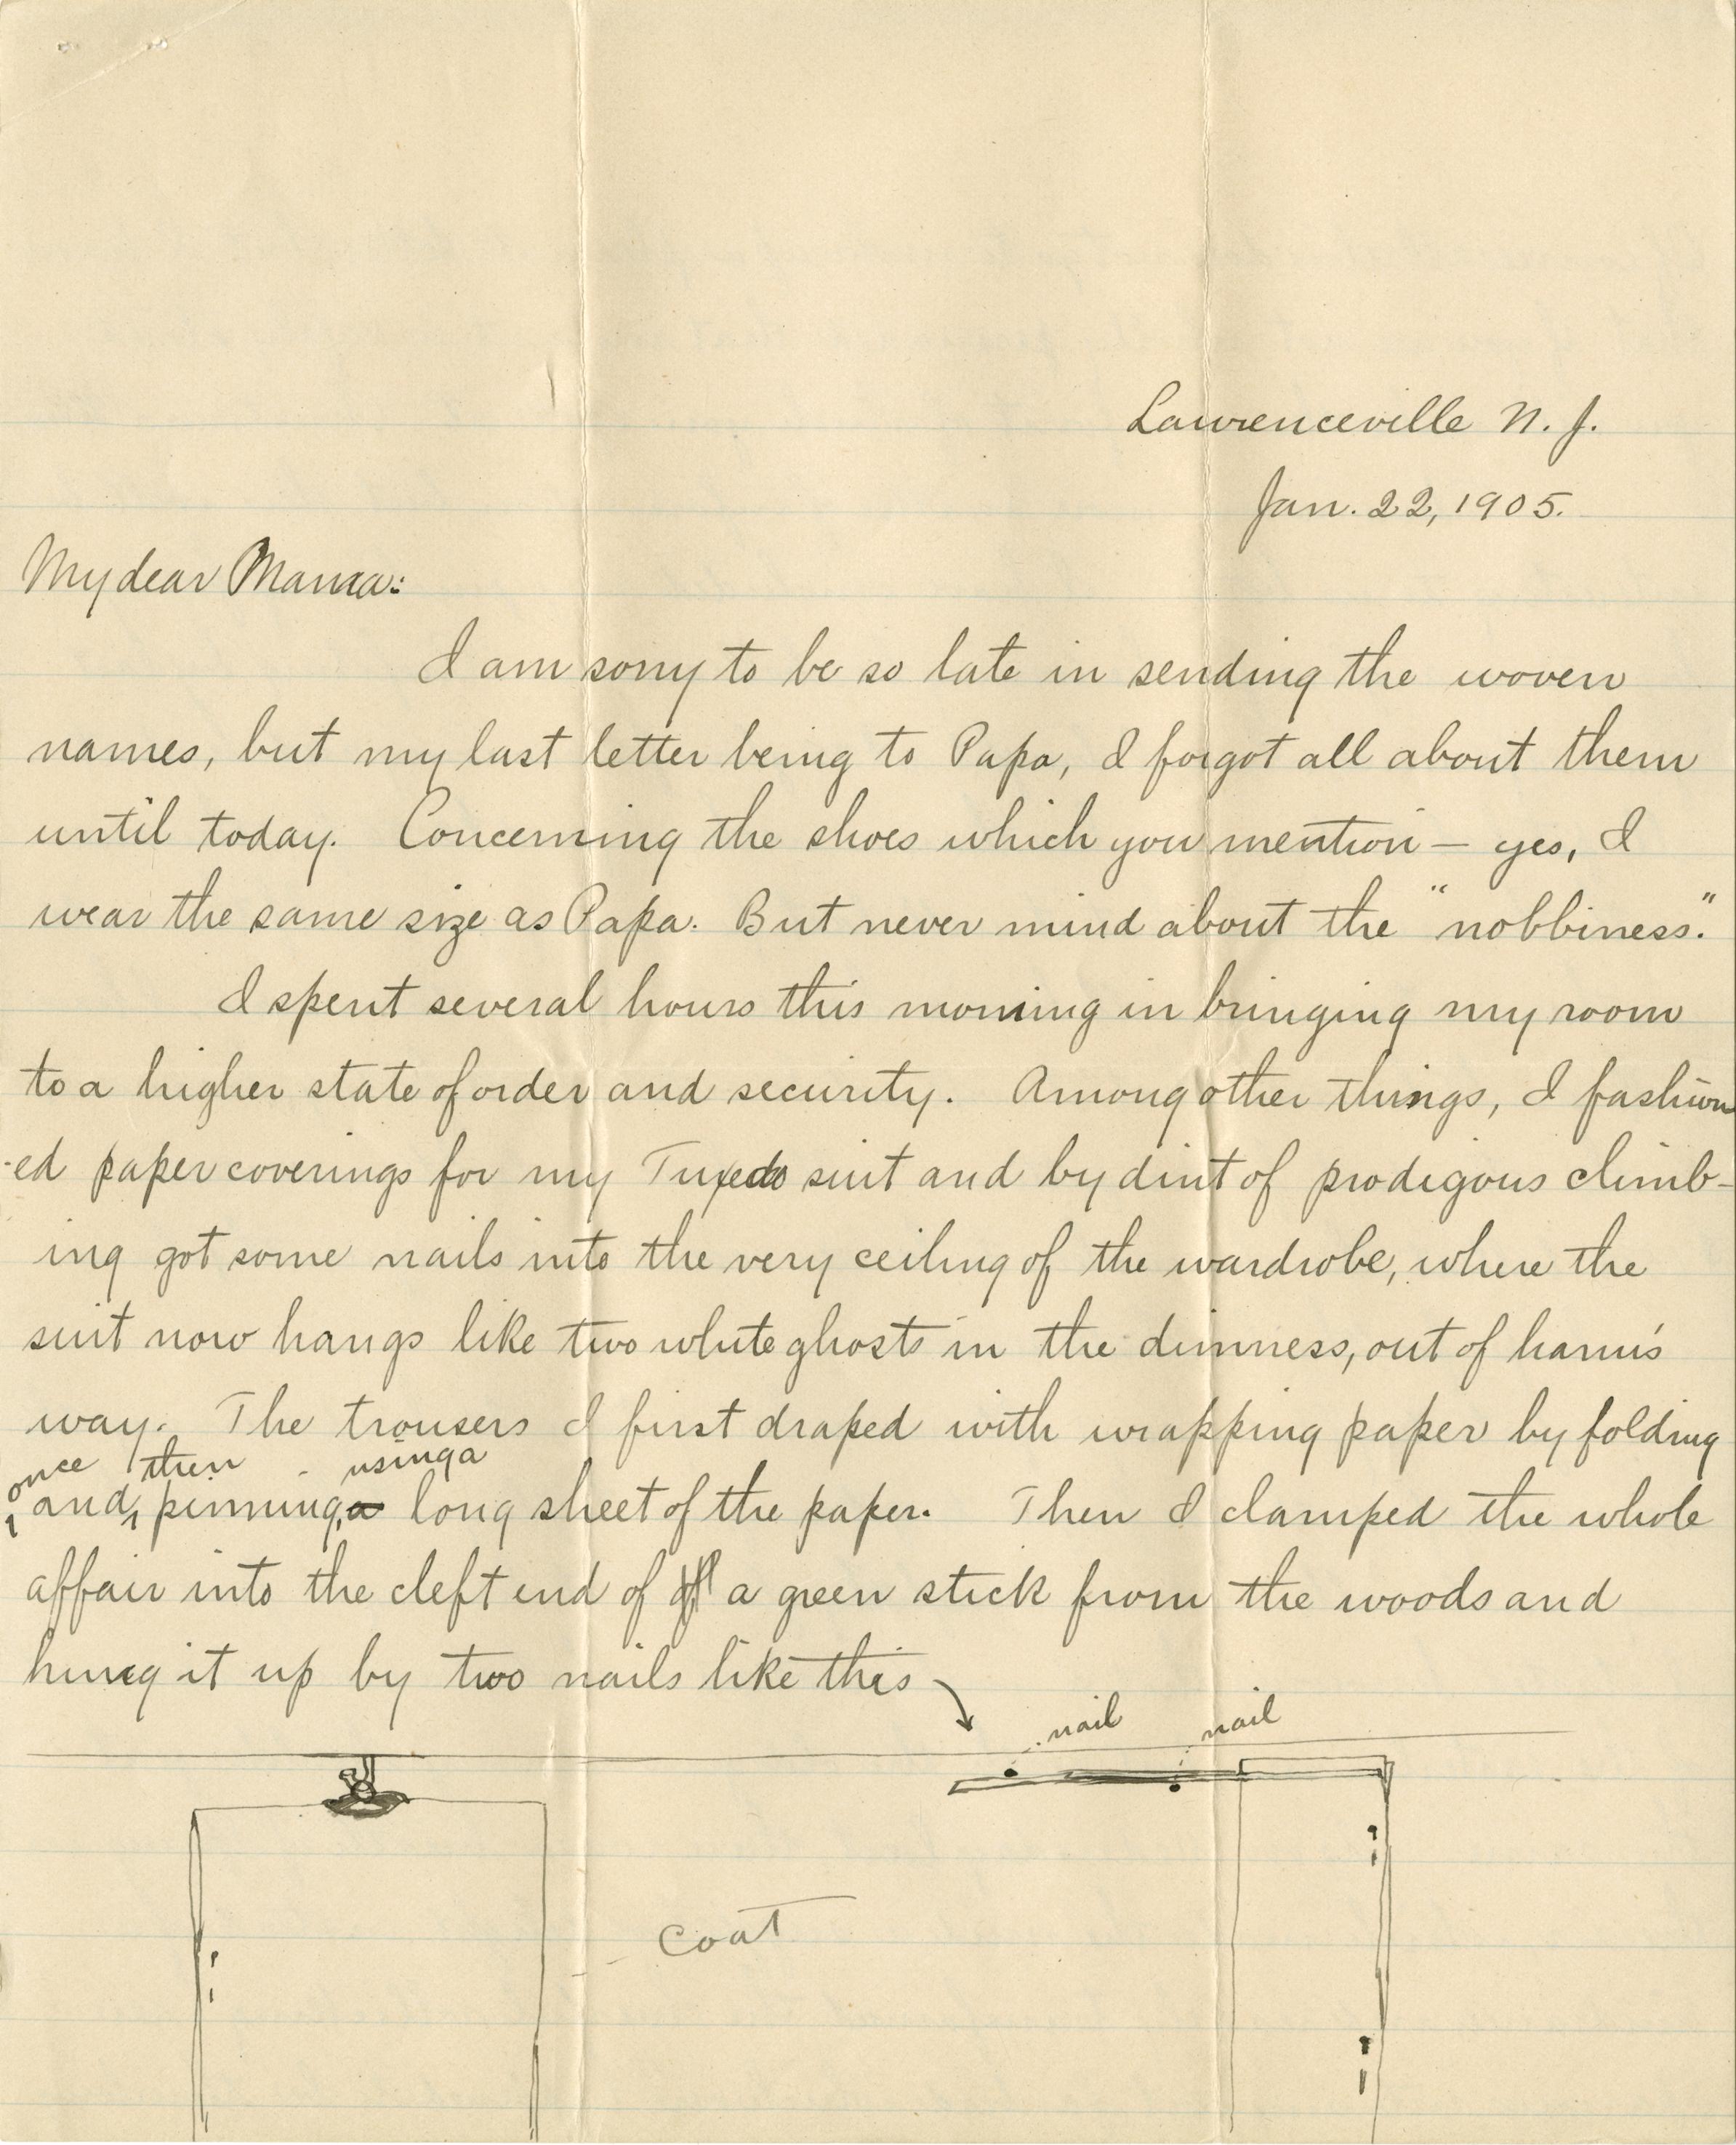 Lawrenceville N. J.
Jan. 22, 1905.
My dear Mama:
I am sorry to be so late in sending the woven
names, but my last letter being to Papa, I forgot all about them
until today. Concerning the shoes which you mention — yes, I
wear the same size as Papa. But never mind about the "nobbiness."
I spent several hours this morning in bringing my room
to a higher state of order and security. Among other things, I fashion
-ed paper coverings for my Tuxedo suit and by dint of prodigous climb-
ing got some nails into the very ceiling of the wardrobe, where the
suit now hangs like two white ghosts in the dimness, out of harm's
way. The trousers I first draped with wrapping paper by folding
once then using a
and, pinning a long sheet of the paper. Then I clamped the whole
affair into the cleft end of a green stick from the woods and
hung it up by two nails like this
nail nail
Coat